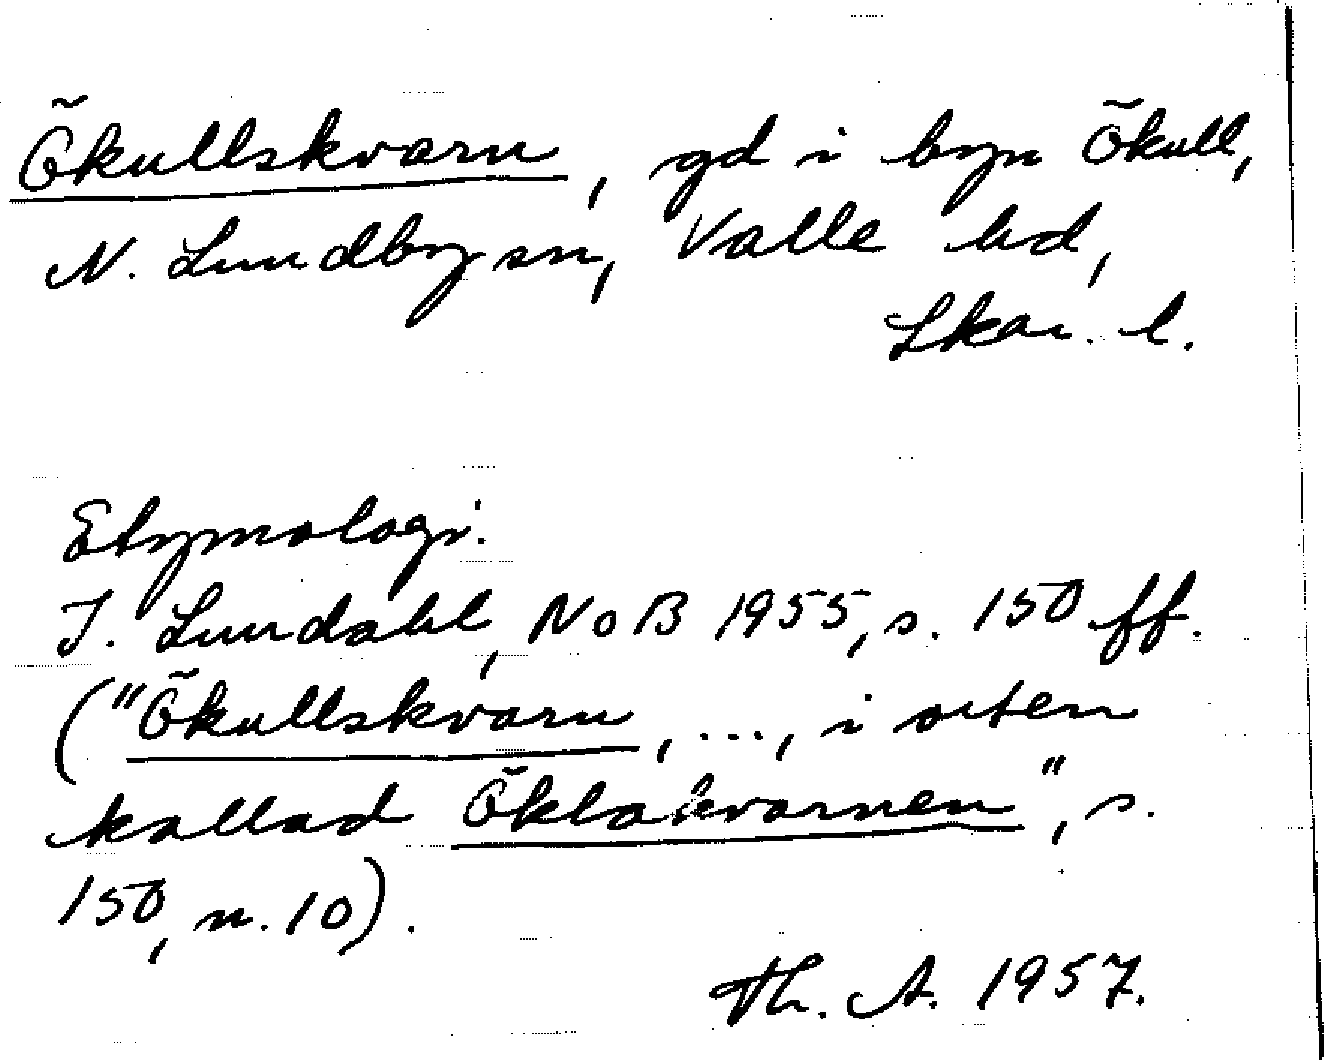 Ökullskvarn, gd i byn Ökull,
N. Lundby sn, Valle hd,
Skar. l.
Etymologi:
I. Lundahl, NoB 1955, s. 150 ff.
("Ökullskvarn, ..., i orten
kallad Öklakvarnen", s.
150, n. 10).
Th. A. 1957.